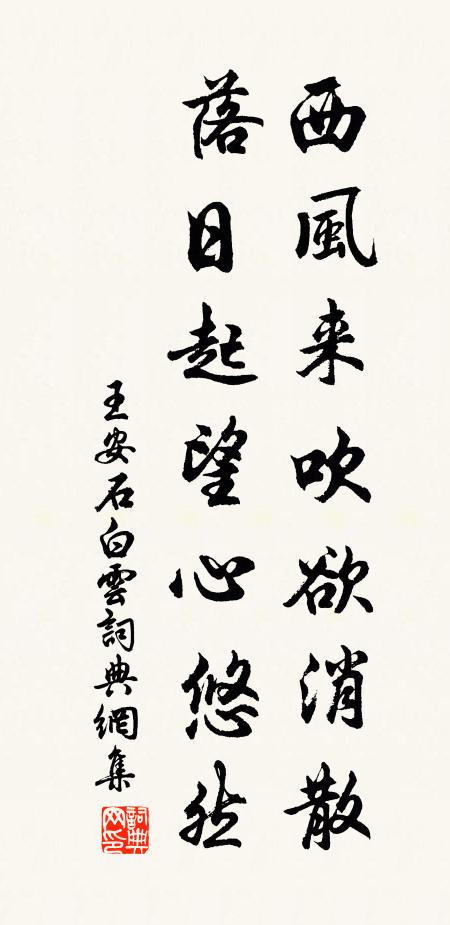 西風来吹欲消散
落日起望心悠然
王安石白雲詞典網集
詞典
网印